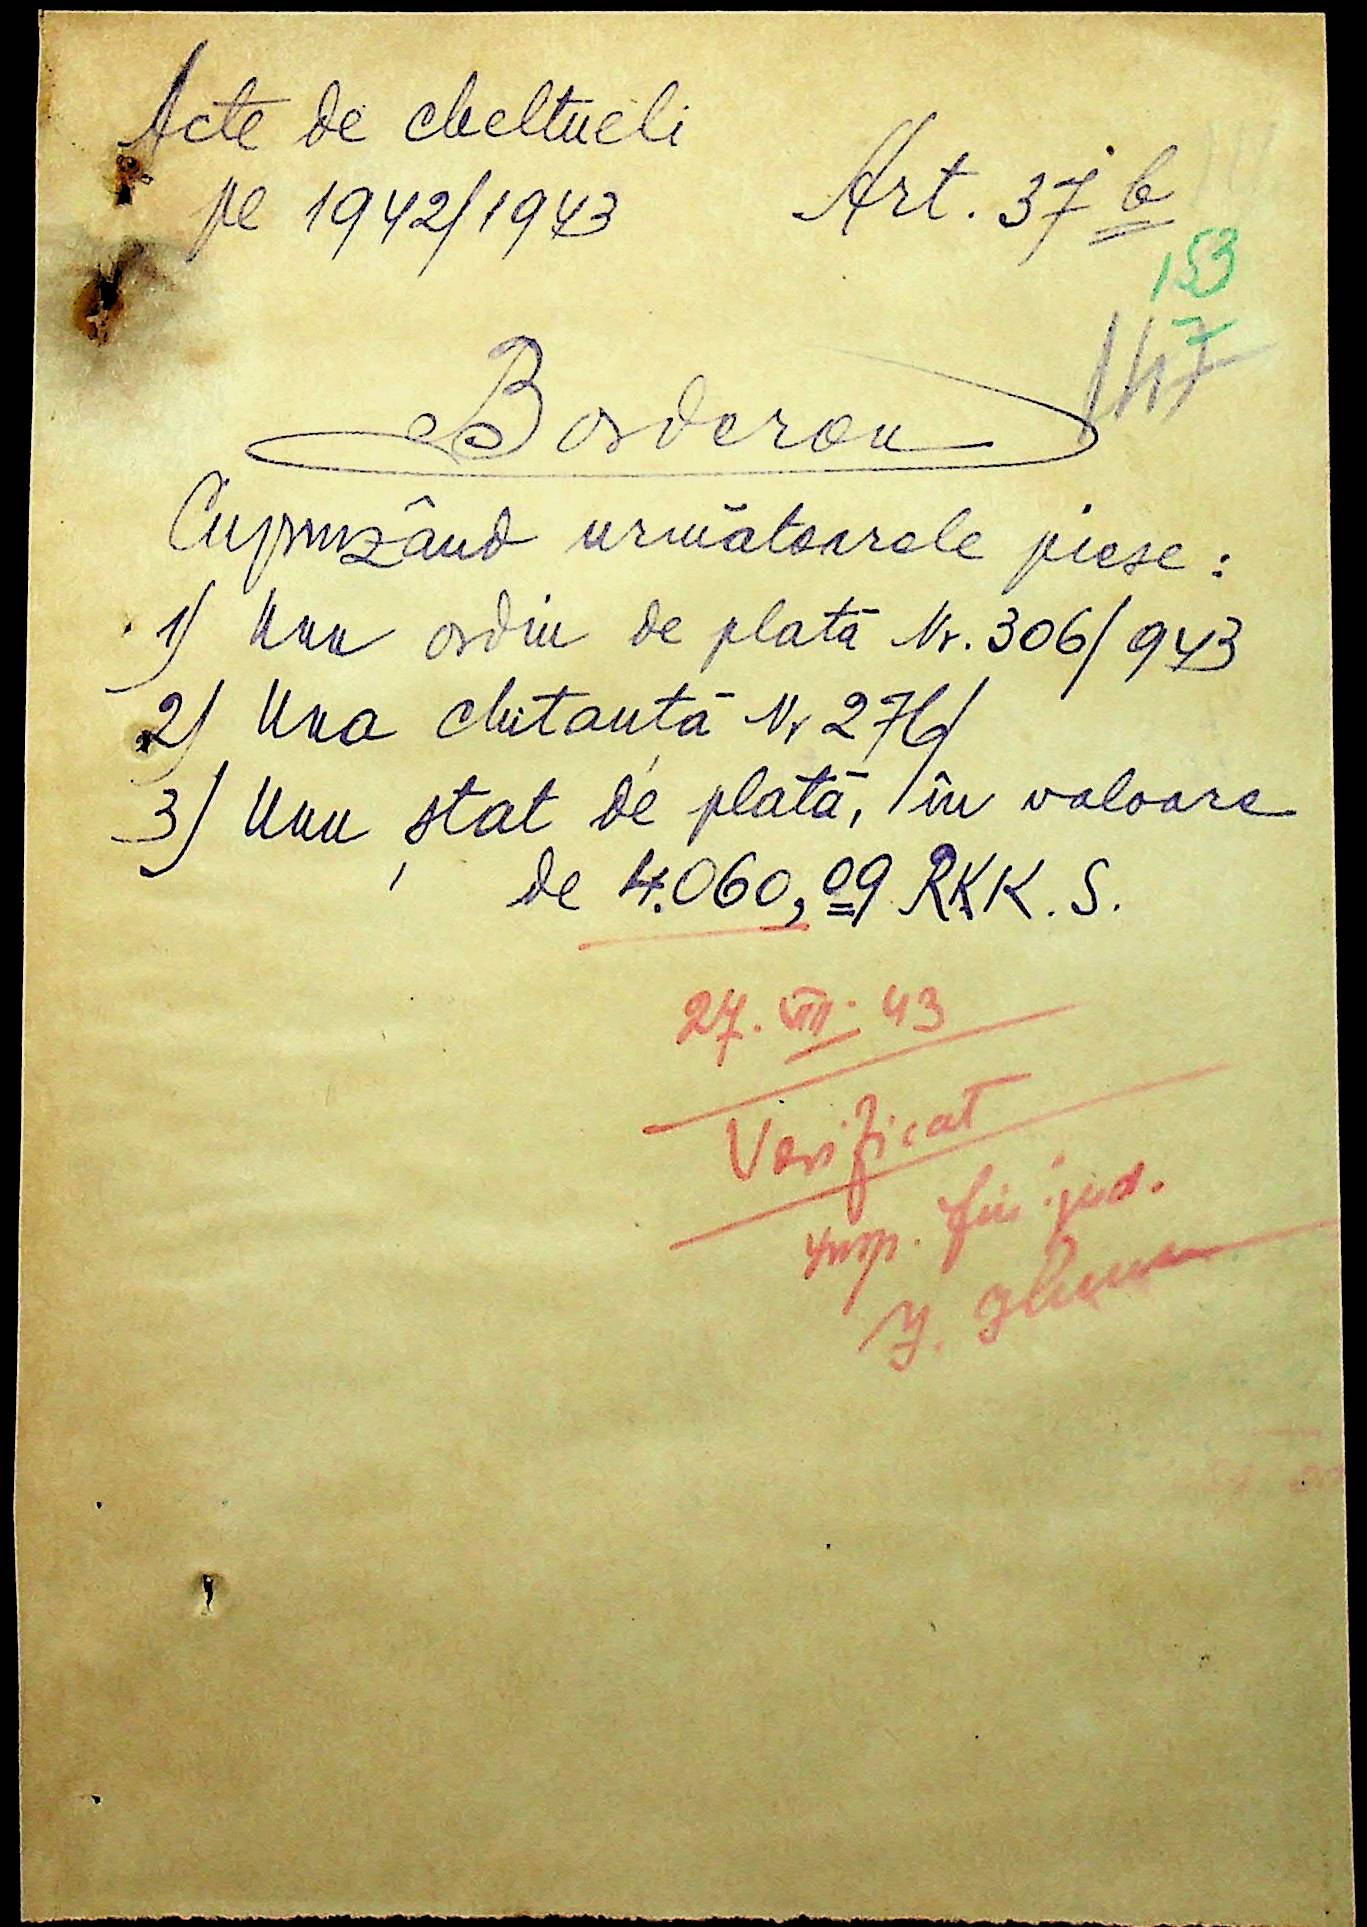 Acte de cheltueli
pe 1942/1943
Art. 37 b
153
147
Borderou
Cuprinzând următoarele piese:
1) Unu ordin de plată Nr. 306/943
2) Una chitanță Nr 276/
3) Unu stat de plată, în valoare
de 4.060,09 RKK.S.
27. VII. 43
Verificat
Insp. fin. jud.